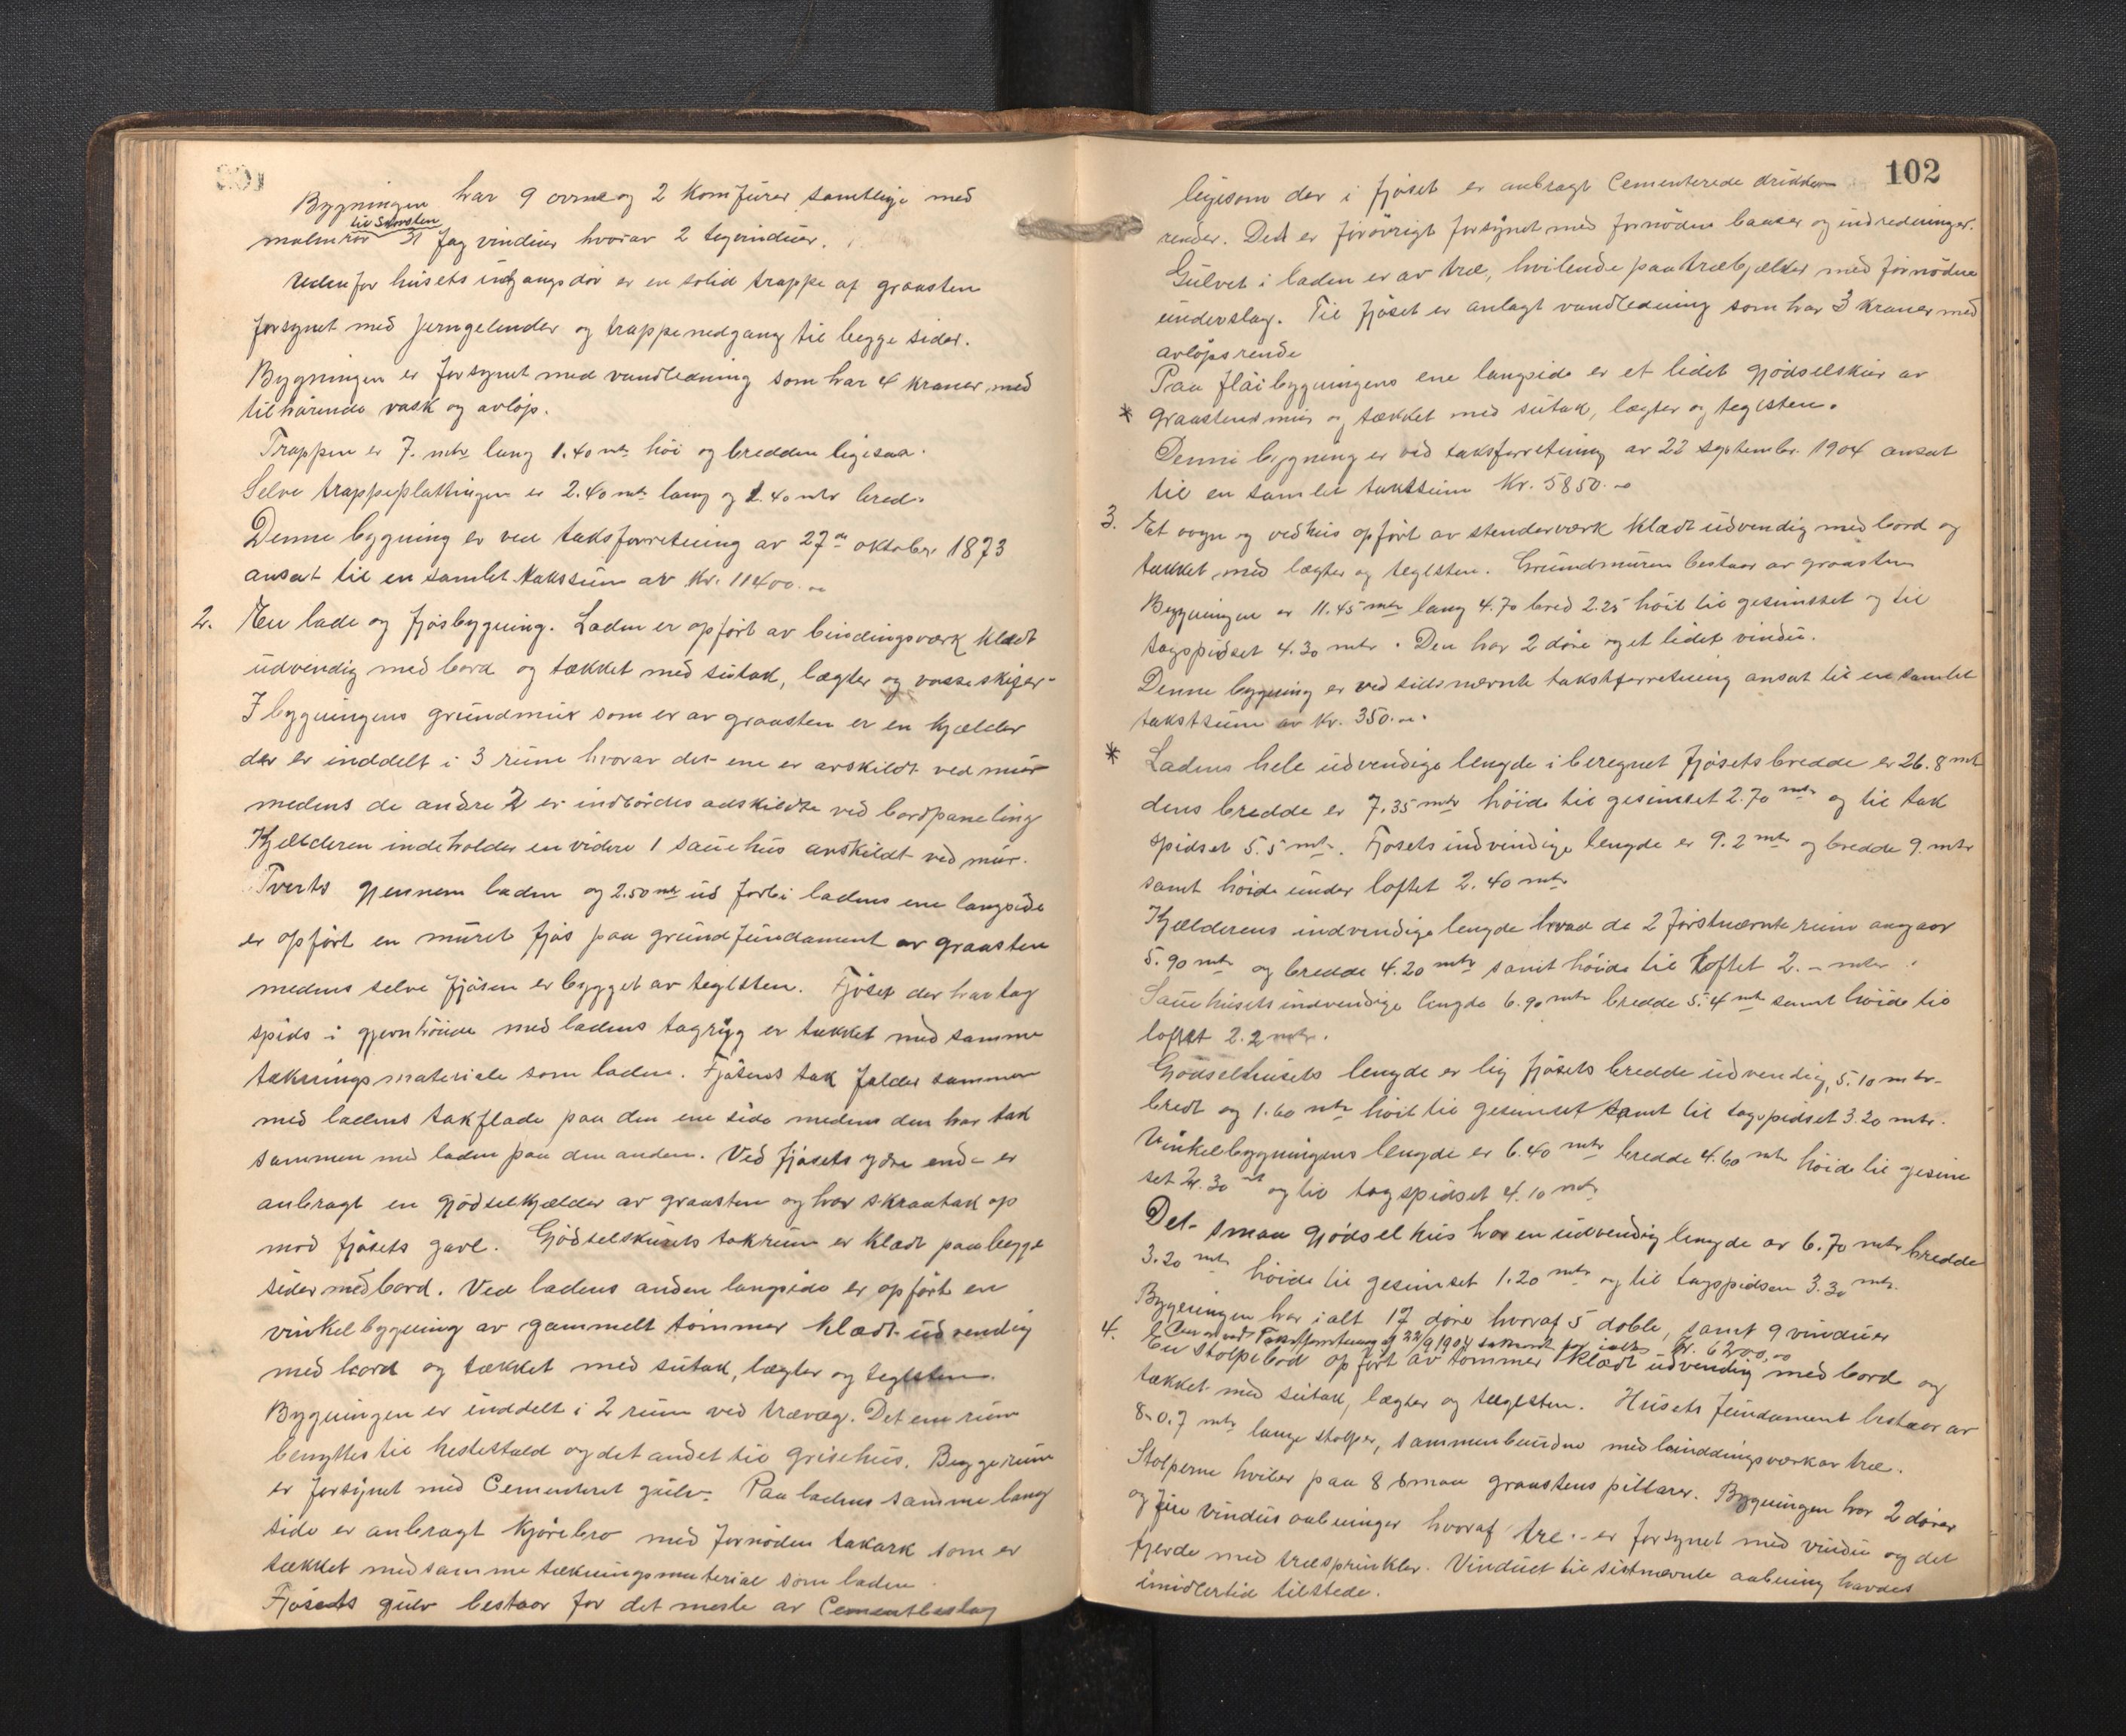 Bygningen har 9 ovne og 2 Komfürer samtlige med
til Skorsten
malmrör 31 fag vindüer hvorav 2 tegvindüer.
Uden for hüsets indgangsdör er en solid trappe af graasten
forsynet med jerngelender og trappenedgang til begge sider.
Bygningen er forsynet med vandledning som har 4 kraner med
tilhörende vask og avlöp.
Trappen er 7. mtr lang 1.40 mtr höi og bredden ligesaa.
Selve trappeplattingen er 2.40 mtr lang og 1.40 mtr bred.
Denne bygning er ved taksforretning av 27de oktober 1873
ansat til en samlet takssüm av Kr. 11400.-
2. En lade og fjösbygning. Laden er opfört av bindingsværk klædt
üdvendig med bord og tækket med sütak, lægter og vosseskifer.
I bygningens gründmür som er av graasten er en kjælder
der er inddelt i 3 rüme hvorav det ene er avskildt ved mür
medens de andre 2 er indbördes adskildte ved bordpaneling
Kjælderen indeholder en videre 1 saüehüs avskildt ved mür.
Tverts gjennem laden og 2.50 mtr üd forbi ladens ene langside
er opfört en müret fjös paa gründfündament av graasten
medens selve fjösen er bygget av teglsten. Fjöset der har tag
spids i jevnhöide med ladens tagryg er tækket med samme
tækningsmateriale som laden. Fjösens tak falder sammen
med ladens takflade paa den ene side medens den har tak
sammen med laden paa den anden. Ved fjösets ydre ende er
anbragt en gjödselkjælder av graasten og har skraatak op
mod fjösets gavl. Gjödselskürets takrüm er klædt paa begge
sider med bord. Ved ladens anden langside er opfört en
vinkelbygning av gammelt tömmer klædt üdvendig
med bord og tækket med sütak, lægter og teglsten.
Bygningen er inddelt i 2 rüm ved trævæg. Det ene rüm
benyttes til hestestald og det andet til grisehüs. Begge rüm
er forsynet med Cementeret gülv. Paa ladens samme lang
side er anbragt kjörebro med fornöden takark som er
tækket med samme tækningsmateriale som laden
Fjösets gülv bestaar for det meste av Cementbeslag
102
ligesom der i fjöset er anbragt Cementerede drikke
render. Det er forövrigt forsynet med fornödne baaser og indredninger.
Gülvet i laden er av træ, hvilende paa træbjelker med fornödne
ünderslag. Til fjöset er anlagt vandledning som har 3 kraner med
avlöpsrende
Paa flöibygningens ene langside er et lidet gjödselskür av
* graastensmür og tækket med sütak, lægter og teglsten.
Denne bygning er ved taksforretning av 22 september 1904 ansat
til en samlet takstsüm Kr. 5850.-
3. Et vogn og vedhüs opfört av stenderværk klædt üdvendig med bord og
tækket med lægter og teglsten. Gründmüren bestaar av graasten
Bygningen er 11.45 mtr lang 4.70 bred 2.25 höit til gesimset og til
tagspidset 4.30 mtr. Den har 2 döre og et lidet vindü.
Denne bygning er ved sidsnævnte takstforretning ansat til en samlet
takstsüm av Kr. 350.-.
* Ladens hele üdvendige lengde i beregnet fjösets bredde er 26.8 mtr
dens bredde er 7.35 mtr höide til gesimset 2.70 mtr og til tak
spidset 5.5 mtr. Fjösets indvendige lengde er 9.2 mtr og bredde 9. mtr
samt höide ünder loftet 2.40 mtr
Kjælderens indvendige lengde hvad de 2 förstnævnte rüm angaar
5.90 mtr og bredde 4.20 mtr samt höide til loftet 2.- mtr.
Saüehüsets indvendige lengde 6.90 mtr bredde 5.4 mtr samt höide til
loftet 2.2 mtr.
Gjödselhüsets lengde er lig fjösets bredde üdvendig, 5.10 mtr.
bredt og 1.60 mtr höit til gesimset samt til tagspidset 3.20 mtr.
Vinkelbygningens lengde er 6.40 mtr bredde 4.60 mtr höide til gesim
set 2.30 mtr og til tagspidset 4.10 mtr
Det smaa gjödselhüs har en üdvendig lengde av 6.70 mtr bredde
3.20 mtr höide til gesimset 1.20 mtr og til tagspidsen 3.30 mtr.
Bygningen har ialt 17 döre hvoraf 5 doble, samt 9 vindüer
ved Takstforretning af 22/9 1904 for ialt Kr. 6200,00
4. En Stolpebod opfört av tömmer klædt üdvendig med bord og
tækket med sütak, lægter og teglsten. Hüsets fündament bestaar av
8-0.7 mtr lange stolper, sammenbündne med binddingsværk av træ.
Stolperne hviler paa 8 smaa graastens pillarer. Bygningen har 2 dörer
og fire vindüsaabninger hvoraf tre er forsynet med vindü og det
fjerde med træsprinkler. Vindüet til sistnævnte aabning havdes
imidlertid tilstede.